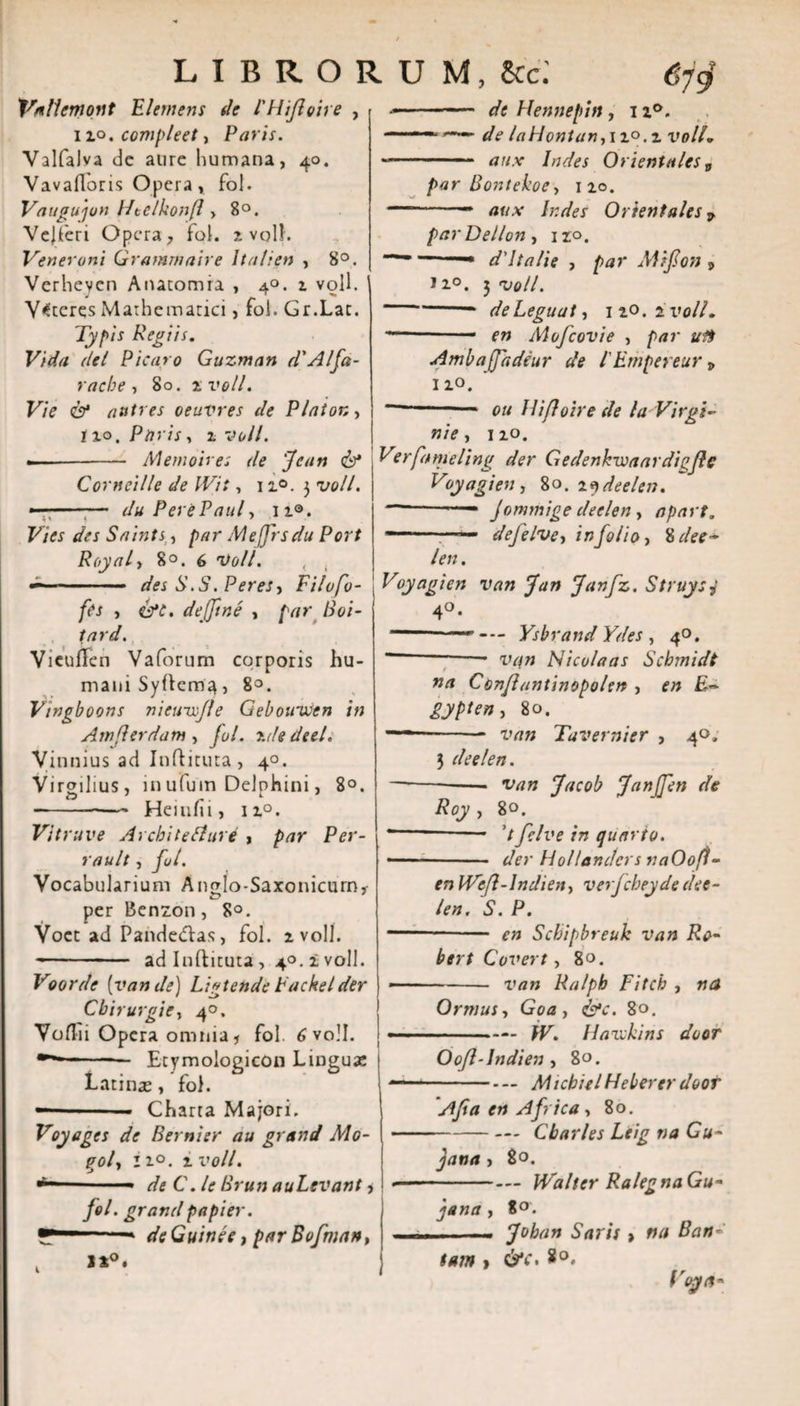 LIBRORUM, &c. 679
Vallemont Elemens de l'Hiſtoire ,
12°. compleet, Paris.
Valſalva de aure humana, 4°.
Vavaſſoris Opera, fol.
Vaugujon Heelkonſt, 8°.
Velſeri Opera, fol. 2 voll.
Veneroni Grammaire Italien , 8°.
Verheyen Anatomia , 4°. 2 voll.
Veteres Mathematici, fol. Gr.Lat.
Typis Regiis.
Vida del Picaro Guzman d'Alfa-
rache, 8o. 2 voll.
Vie & autres oeuvres de Platon,
12o. Paris, 2 voll.
——— Memoires de Jean &
Corneille de Wit, 12°. 3 voll.
——— du Pere Paul, 12°.
Vies des Saints, par Meſſrs du Port
Royal, 8°. 6 voll.
——— des S.S. Peres, Filoſo-
fes , &c. deſſiné , par Boi-
tard.
Vieuſſen Vaſorum corporis hu-
mani Syſtema, 8°.
Vingboons nieuwſte Gebouwen in
Amſterdam, fol. 2de deel.
Vinnius ad Inſtituta, 4°.
Virgilius, in uſum Delphini, 8°.
——— Heinſii, 12°.
Vitruve Architecturé , par Per-
rault, fol.
Vocabularium Anglo-Saxonicum,
per Benzon, 8°.
Voet ad Pandectas, fol. 2 voll.
——— ad Inſtituta, 4°. 2 voll.
Voorde (van de) Ligtende Fackel der
Chirurgie, 4°.
Voſſii Opera omnia, fol. 6 voll.
——— Etymologicon Linguæ
Latinæ, fol.
——— Charta Majori.
Voyages de Bernier au grand Mo-
gol, 12°. 2 voll.
——— de C. le Brun au Levant,
fol. grand papier.
——— de Guinée, par Boſman,
12°.
——— de Hennepin, 12°.
——— de la Hontan, 12°. 2 voll.
——— aux Indes Orientales,
par Bontekoe, 12o.
——— aux Indes Orientales,
par Dellon, 12°.
——— d'Italie , par Miſſon,
12°. 3 voll.
——— de Leguat, 12°. 2 voll.
——— en Moſcovie , par un
Ambaſſadeur de l'Empereur,
12°.
——— ou Hiſtoire de la Virgi-
nie, 12o.
Verſameling der Gedenkwaardigſte
Voyagien, 8o. 29 deelen.
——— ſommige deelen, apart.
——— deſelve, in folio, 8 dee-
len.
Voyagien van Jan Janſz. Struys,
4°.
——— Ysbrand Ydes, 4°.
——— van Nicolaas Schmidt
na Conſtantinopolen , en E-
gypten, 8o.
——— van Tavernier , 4°.
3 deelen.
——— van Jacob Janſſen de
Roy, 8°.
——— 't ſelve in quarto.
——— der Hollanders na Ooſt-
en Weſt-Indien, verſcheyde dee-
len. S. P.
——— en Schipbreuk van Ro-
bert Covert, 8o.
——— van Ralph Fitch , na
Ormus, Goa, &c. 8o.
——— W. Hawkins door
Ooſt-Indien, 8o.
——— Michiel Heberer door
Aſia en Africa, 8o.
——— Charles Leig na Gu-
jana, 8o.
——— Walter Raleg na Gu-
jana, 8o.
——— Johan Saris , na Ban-
tam , &c. 8°.
Voya-